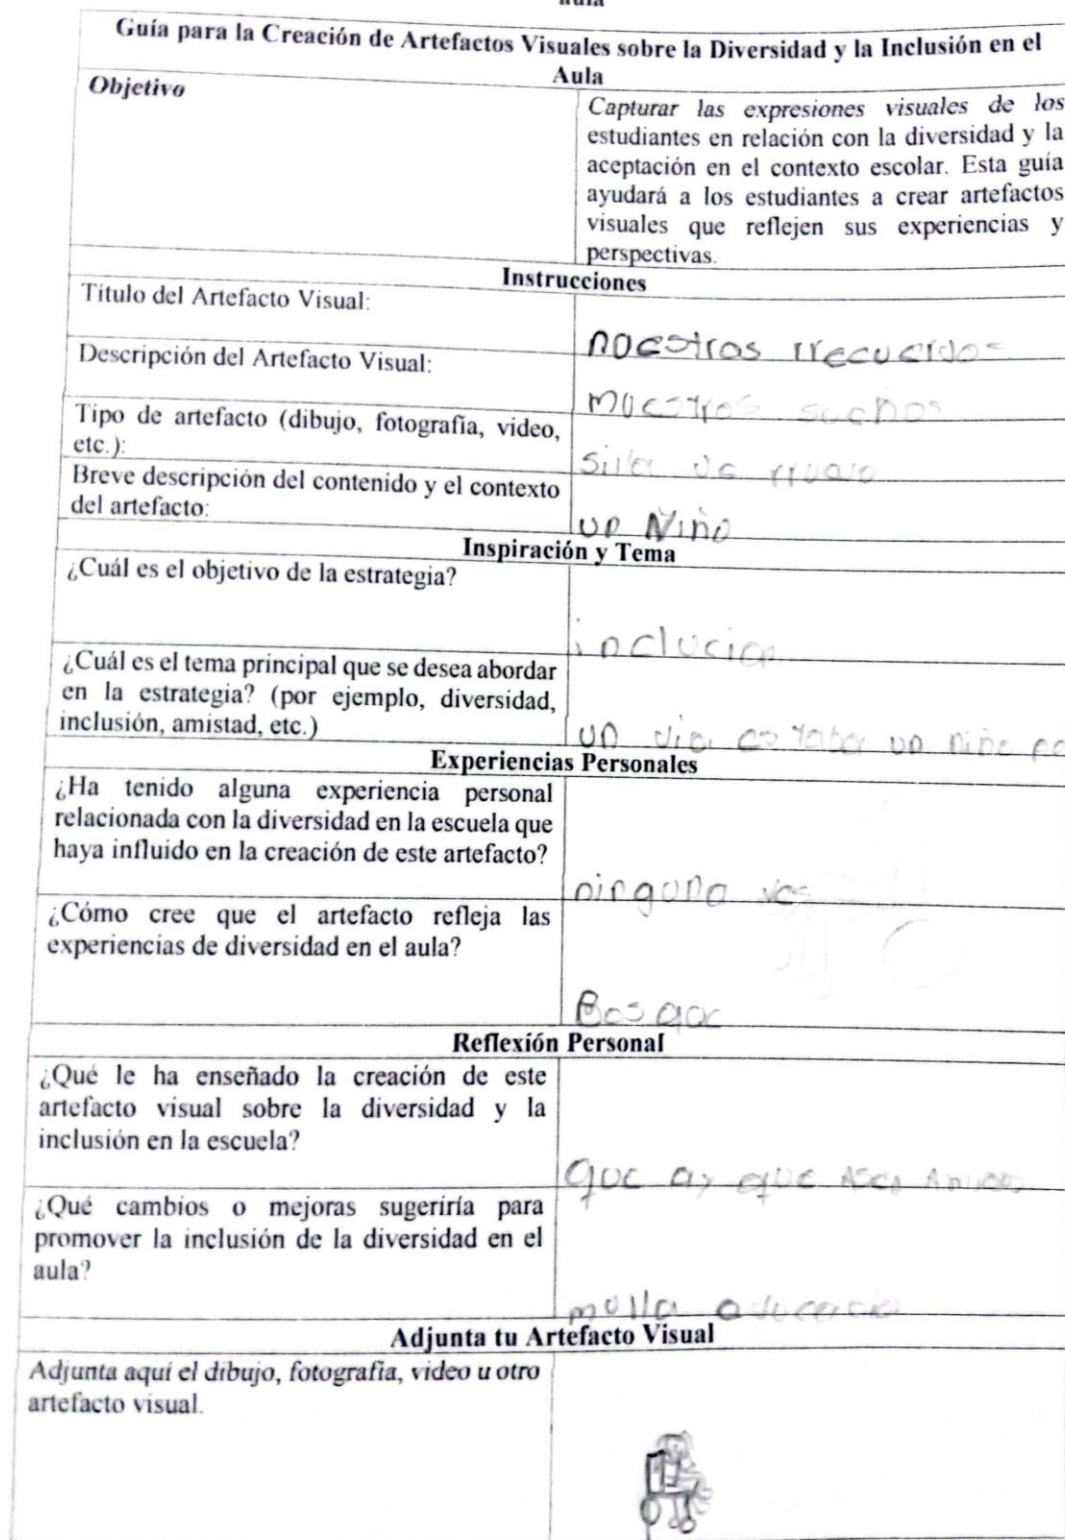 Guía para la Creación de Artefactos Visuales sobre la Diversidad y la Inclusión en el
Aula
Objetivo
Capturar las expresiones visuales de los
estudiantes en relación con la diversidad y la
aceptación en el contexto escolar. Esta guía
ayudará a los estudiantes a crear artefactos
visuales que reflejen sus experiencias y
perspectivas.
Instrucciones
Título del Artefacto Visual:
nuestros rrecuerdos
Descripción del Artefacto Visual:
muestros sueños
Tipo de artefacto (dibujo, fotografía, video,
etc.):
silla de rruala
Breve descripción del contenido y el contexto
del artefacto:
un Niño
Inspiración y Tema
¿Cuál es el objetivo de la estrategia?
inclucion
¿Cuál es el tema principal que se desea abordar
en la estrategia? (por ejemplo, diversidad,
inclusión, amistad, etc.)
un dia estaba un niño
Experiencias Personales
¿Ha tenido alguna experiencia personal
relacionada con la diversidad en la escuela que
haya influido en la creación de este artefacto?
ninguna ves
¿Cómo cree que el artefacto refleja las
experiencias de diversidad en el aula?
Reflexión Personal
¿Qué le ha enseñado la creación de este
artefacto visual sobre la diversidad y la
inclusión en la escuela?
que ay que
¿Qué cambios o mejoras sugeriría para
promover la inclusión de la diversidad en el
aula?
Adjunta tu Artefacto Visual
Adjunta aquí el dibujo, fotografía, video u otro
artefacto visual.